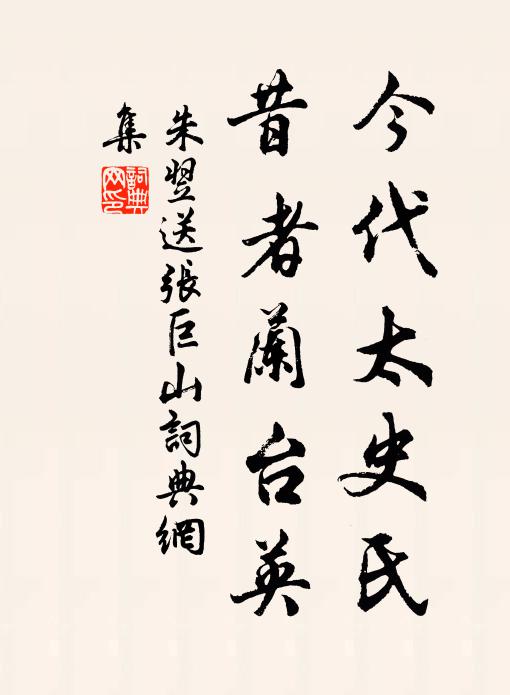 今代太史氏
昔者蘭台英
朱翌送張巨山詞典網
集
詞典網印